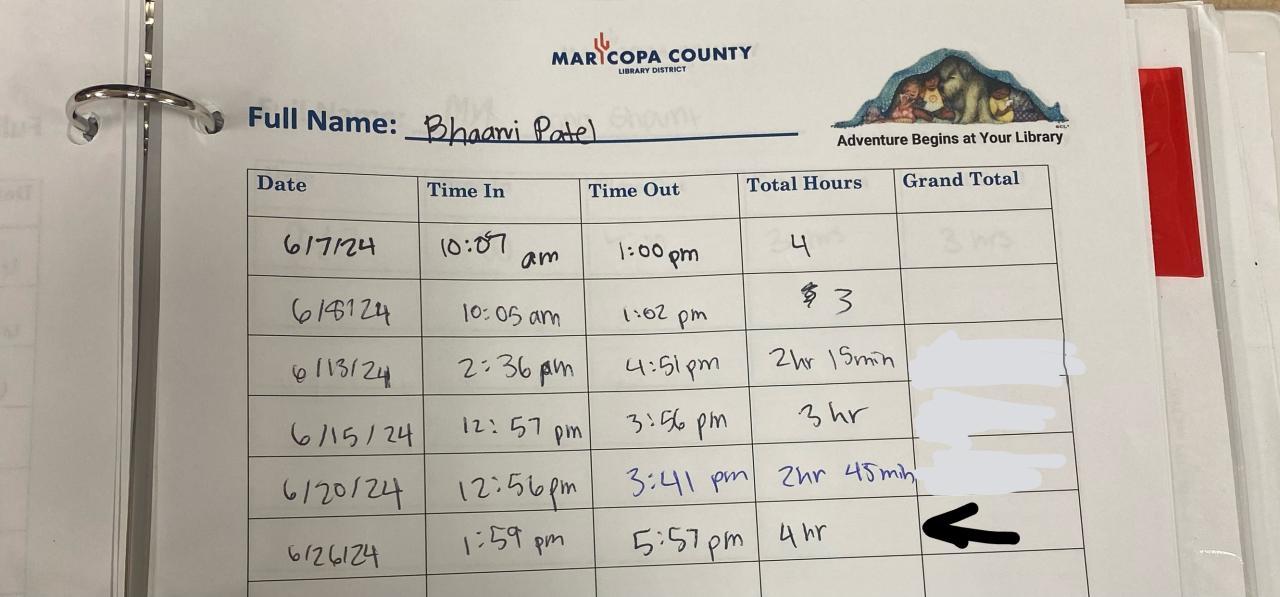 MARICOPA COUNTY
LIBRARY DISTRICT
Full Name: Bhaani Patel
Adventure Begins at Your Library
Date Time In Time Out Total Hours Grand Total
6/7/24 10:07 am 1:00 pm 4
6/8/24 10:05 am 1:02 pm 3
6/13/24 2:36 pm 4:51 pm 2hr 15min
6/15/24 12:57 pm 3:56 pm 3 hr
6/20/24 12:56 pm 3:41 pm 2hr 45min
6/26/24 1:59 pm 5:57 pm 4 hr